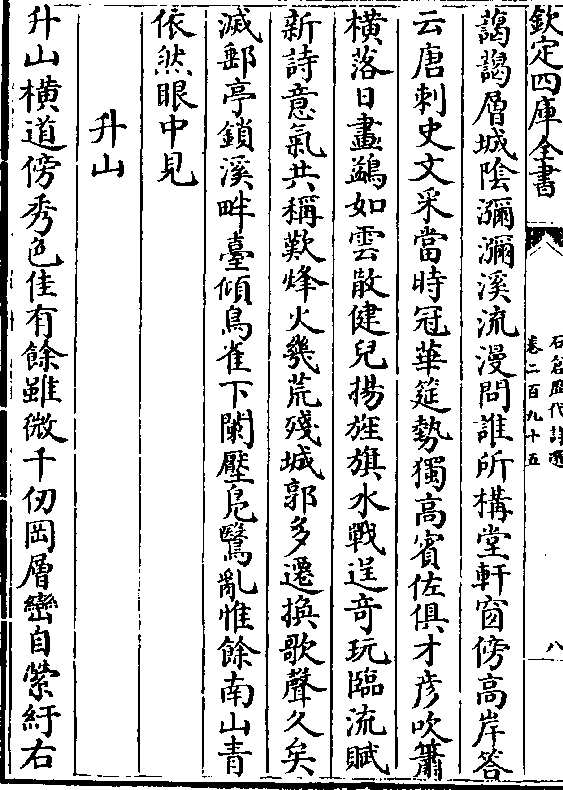 欽定四庫全書
石倉歷代詩選
卷二百九十五
八
藹藹層城陰瀰瀰溪流漫問誰所構堂軒窗傍高岸答
云唐刺史文采當時冠華筵勢獨高賓佐俱才彦吹簫
橫落日畫鷁如雲散健兒揚旌旗水戰逞奇玩臨流賦
新詩意氣共稱歎烽火幾荒殘城郭多遷換歌聲久矣
滅郵亭鎖溪畔臺傾鳥雀下闌壓鳧鷖亂惟餘南山青
依然眼中見
升山
升山橫道傍秀色佳有餘雖微千仞岡層巒自縈紆右